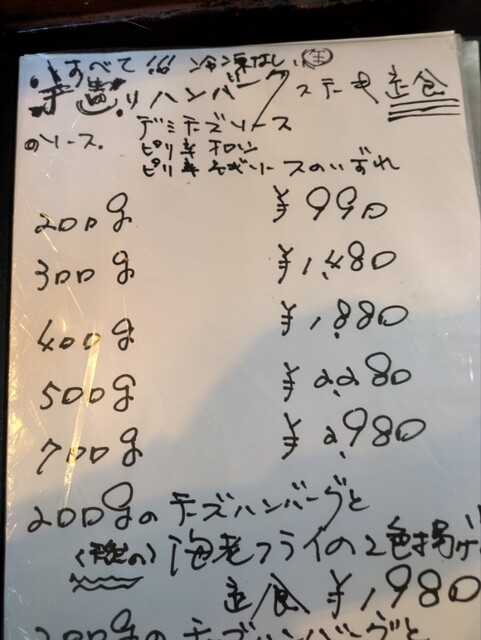 すべて!!! 冷凍なし 生
手造りハンバーグステーキ定食
のソース. デミチーズソース
ピリ辛和風
ピリ辛ネギソースのいずれ
200g ¥990
300g ¥1,480
400g ¥1,880
500g ¥2,280
700g ¥2,980
200gのチーズハンバーグと
海老フライの2色揚げ
定食 ¥1,980
200gのチーズハンバーグと